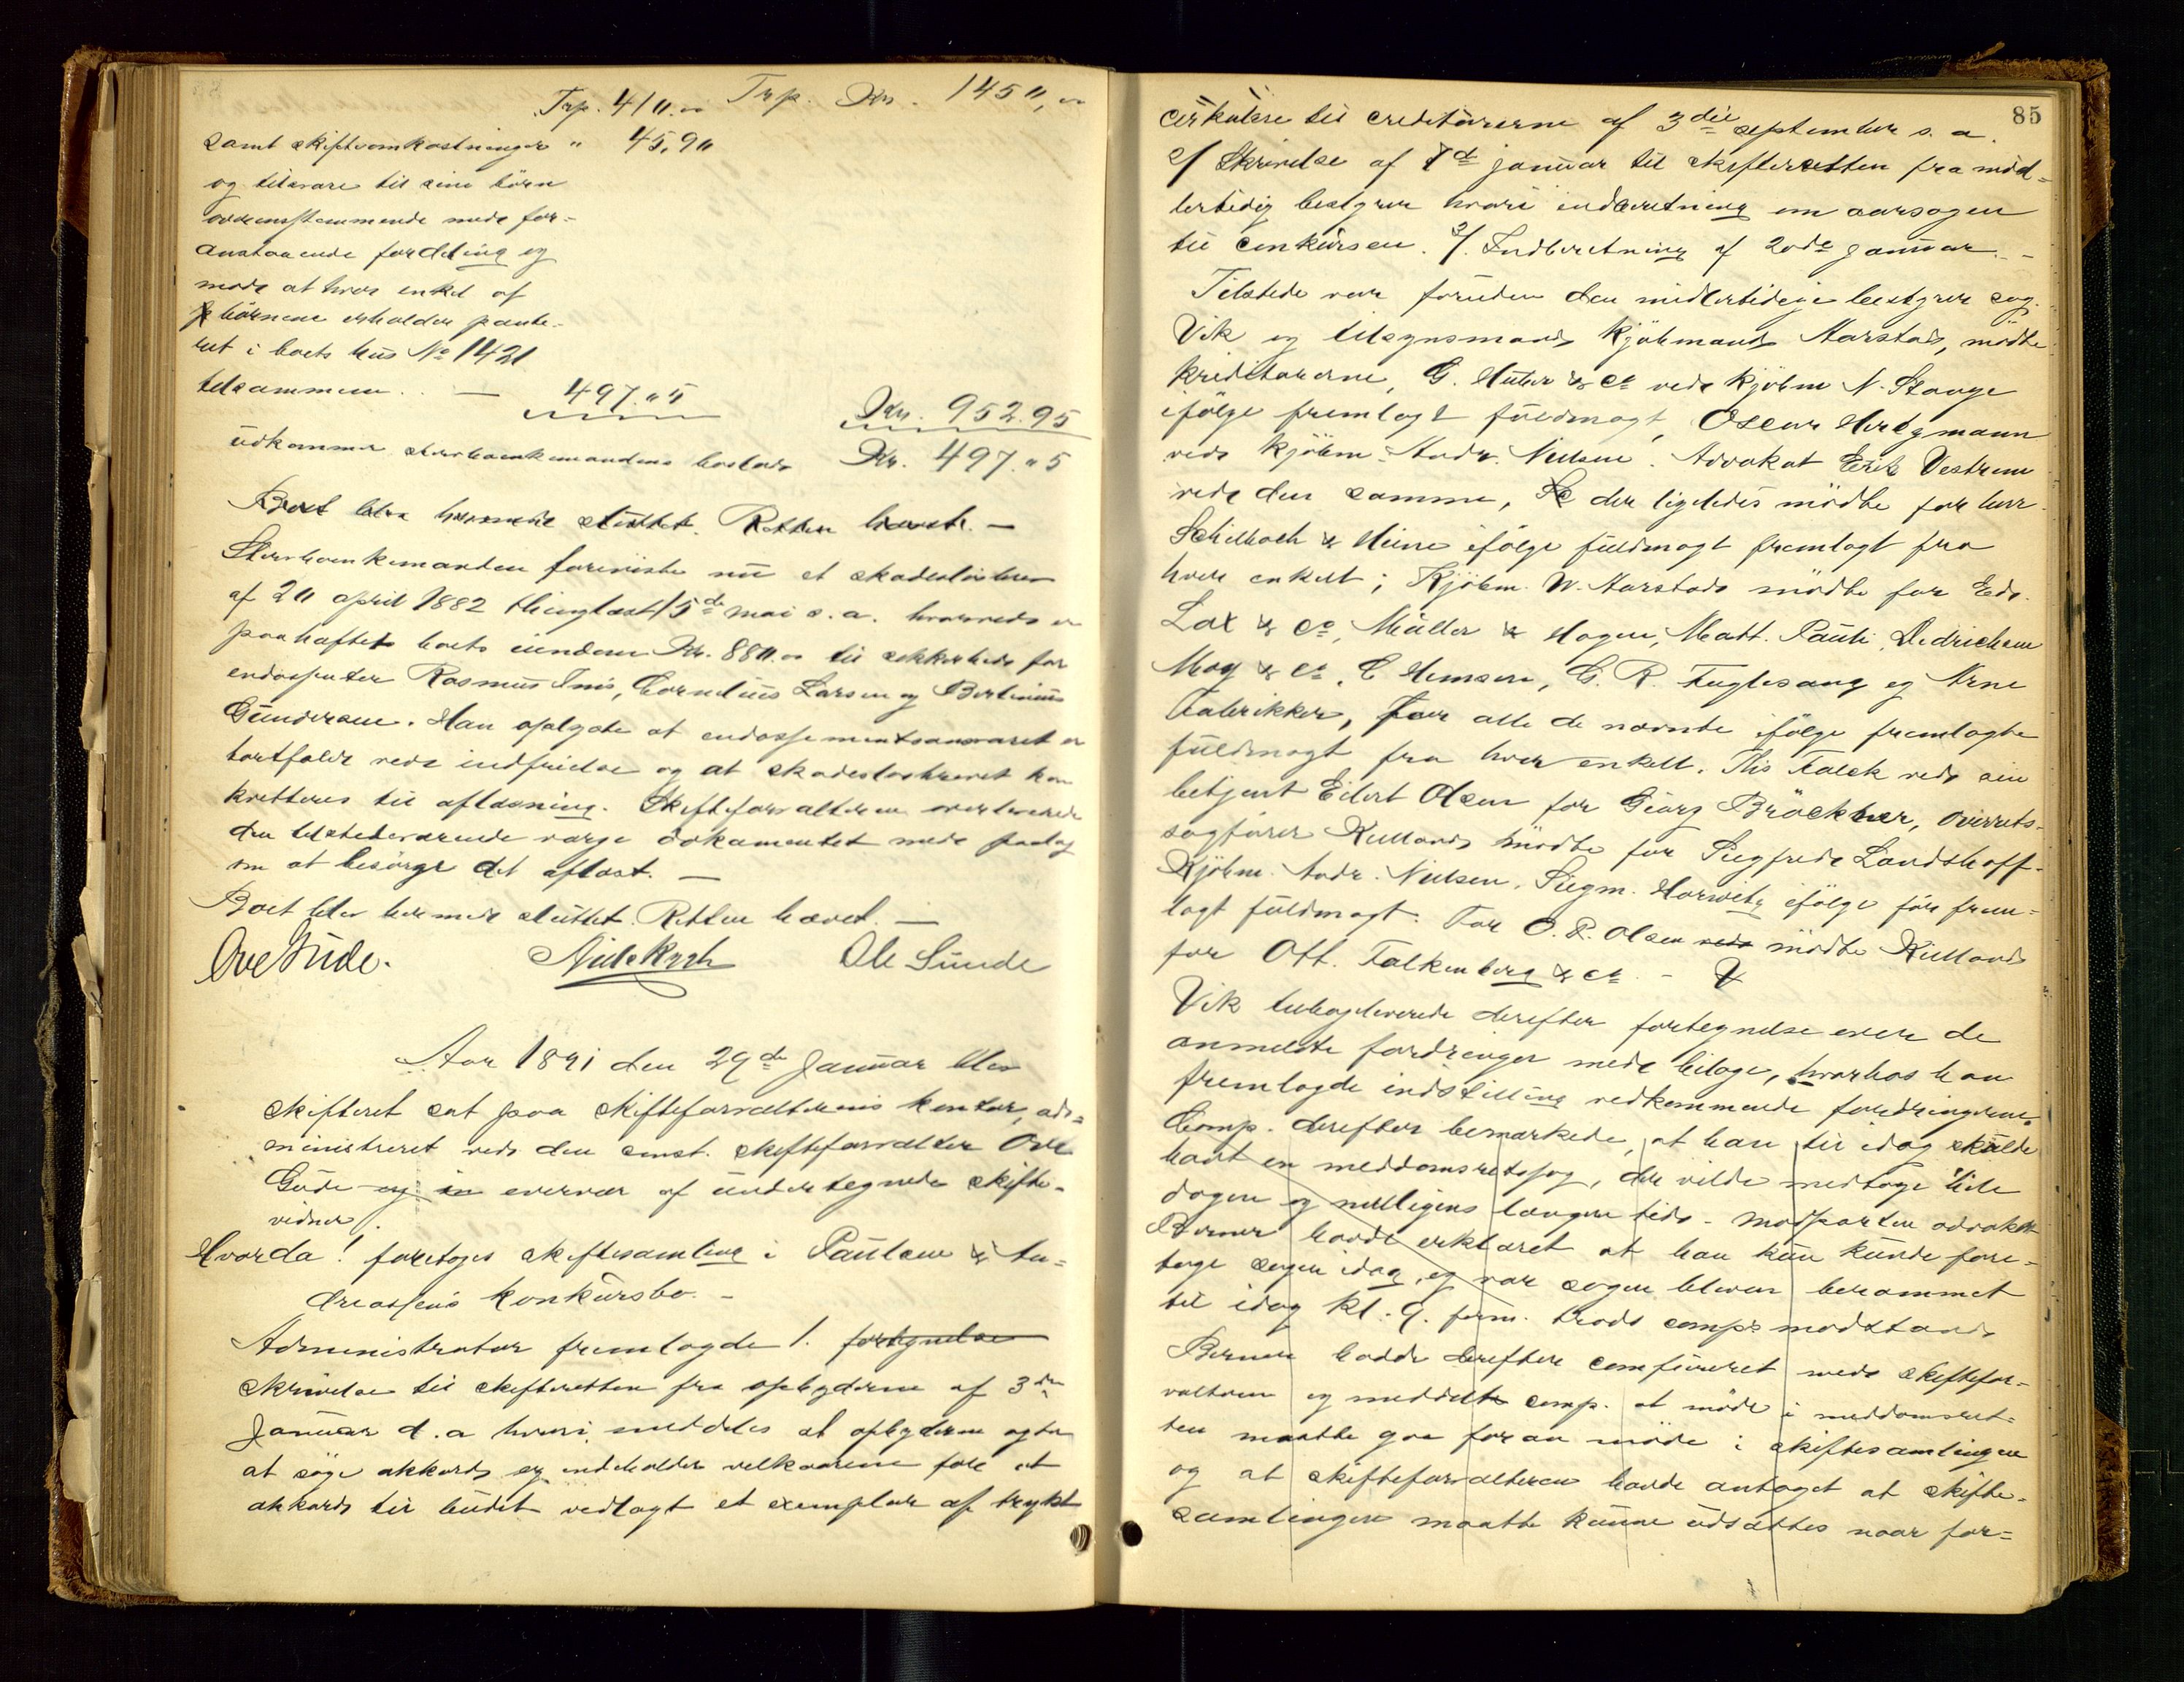 Trp. 410.00 Trp. Kr. 1450,00
samt skifteomkostninger " 45,90
og tilsvare til sine börn
overensstemmende med for-
anstaaende fordeling og
mod at hver enkel af
börnene erholder pante-
ret i boets hus No 1421
tilsammen. — 497.05
Kr. 952.95
udkommer Stervboenkemandens boslod Kr. 497.05
Boet blev hermed sluttet. Retten hævet. —
Stervboenkemanden foreviste nu et skadeslösbrev
af 20 april 1882 thinglæst 15de mai s.a. hvorved er
paaheftet boets eiendom Kr. 880.00 til sikkerhed for
endossenter Rasmus Inis, Cornelius Larsen og Bertinius
Gundersen. Han oplyste at endossementsansvaret er
bortfaldt ved indfrielse og at skadeslösbrevet kan
kvitteres til aflæsning. Skifteforvalteren overleverede
den tilstedeværende værge dokumentet med paalæg
om at besörge det aflæst. —
Boet blev hermed sluttet. Retten hævet. —
Ove Gude. Ole Sunde
Aar 1891 den 29de Januar blev
skifteret sat paa skifteforvalterens kontor, ad-
ministreret ved den const. skifteforvalter Ove
Gude og in overvær af undertegnede skifte-
vidner.
Hvorda! foretoges skiftesamling i Paulsen & An-
dreassens konkursbo. —
Administrator fremlagde 1. fortegnelse
skrivelse til skifteretten fra opbyderne af 3die
Januar d.a. hvori meddeles at opbyderne agter
at söge akkord og indeholder velkaarene for et
akkord tilbudet vedlagt et exemplar af trykt
85
cirkulære til creditorerne af 3die september s.a.
2/ Skrivelse af 7de januar til skifteretten fra mid-
lertidig bestyrer hvori indberetning om aarsagen
til conkursen. 3/. Indberetning af 20de januar. -
Tilstede var foruden den midlertidige bestyrer sag.
Vik og tilsynsmand kjöbmand Harstad, mödte
kreditorerne, G. Huber & Co ved kjöbm N. Stange
ifölge fremlagt fuldmagt, Oscar Hertzmann
ved kjöbm. Andr. Nielsen. Advokat Erik Vestrum
ved den samme, Sc der ligeledes mödte for herr
Schilbach & Heine ifölge fuldmagt fremlagt fra
hver enkelt; Kjöbm. W. Harstad mödte for Eds.
Lax & Co, Müller & Hagen, Matt. Pauli, Dedrichsen
May & Co, C Hemsen, G. R. Fuglesang og Arne
Fabrikker, for alle de nævnte ifölge fremlagte
fuldmagt fra hver enkelt. Ths Falck ved sin
betjent Eilert Olsen for Georg Bröckner, overrets-
sagförer Kielland mödte for Siegfried Landshoff.
Kjöbm. Andr. Nielsen. Siegm. Horwitz ifölge för frem-
lagt fuldmagt. For O. P. Olsen ved mödte Kielland
for Ott. Falkenberg & Co. -
Vik tilbageleverede derefter fortegnelse over de
anmeldte fordringer med bilage, hvorhos han
fremlagde indstilling vedkommende fordringerne.
Comp. derefter bemærkede, at han til idag skulde
havt en meddomsretssag, der vilde medtage hele
dagen og muligens længere tid. - Modparten advokat
Berner havde erklæret at han kun kunde fore-
tage sagen idag, og var sagen bleven berammet
til idag kl. 9. form. trods comps modstand
Berner hadde derefter confereret med skiftefor-
valteren og meddelt comp. at möde i meddomsret-
ten maatte gaa foran möde i skiftesamlingen
og at skifteforvalteren havde antaget at skifte-
samlingen maatte kunne udsættes naar for-